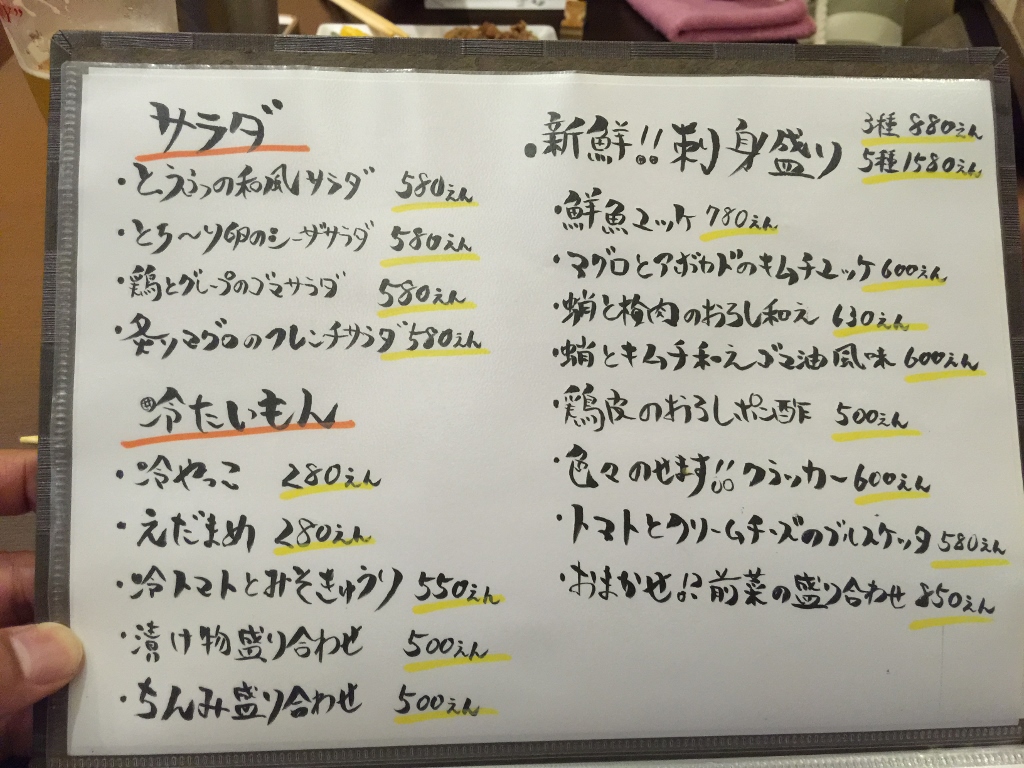 サラダ
・とうふの和風サラダ 580えん
・とろ〜り卵のシーザサラダ 580えん
・鶏とグレープのゴマサラダ 580えん
・炙りマグロのフレンチサラダ 580えん
冷たいもん
・冷やっこ 280えん
・えだまめ 280えん
・冷トマトとみそきゅうり 550えん
・漬け物盛り合わせ 500えん
・ちんみ盛り合わせ 500えん
・新鮮!!刺身盛り 3種 880えん
5種 1580えん
・鮮魚ユッケ 780えん
・マグロとアボカドのキムチユッケ 600えん
・蛸と梅肉のおろし和え 630えん
・蛸とキムチ和えゴマ油風味 600えん
・鶏皮のおろしポン酢 500えん
・色々のせます!!クラッカー 600えん
・トマトとクリームチーズのブルスケッタ 580えん
・おまかせ!?前菜の盛り合わせ 850えん